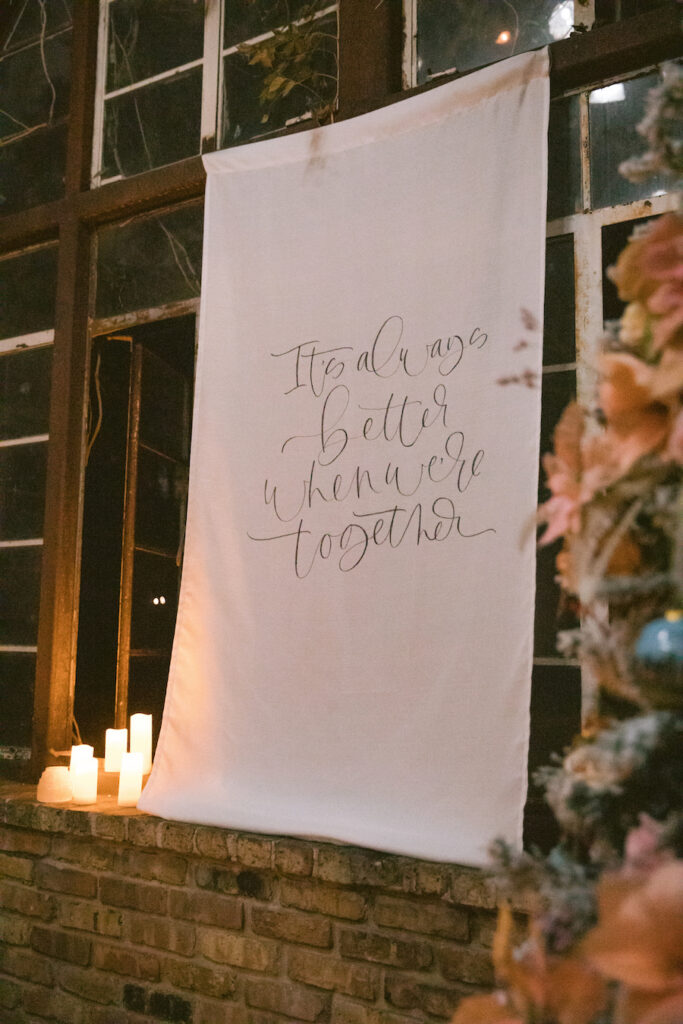 It's always
better
when we're
together